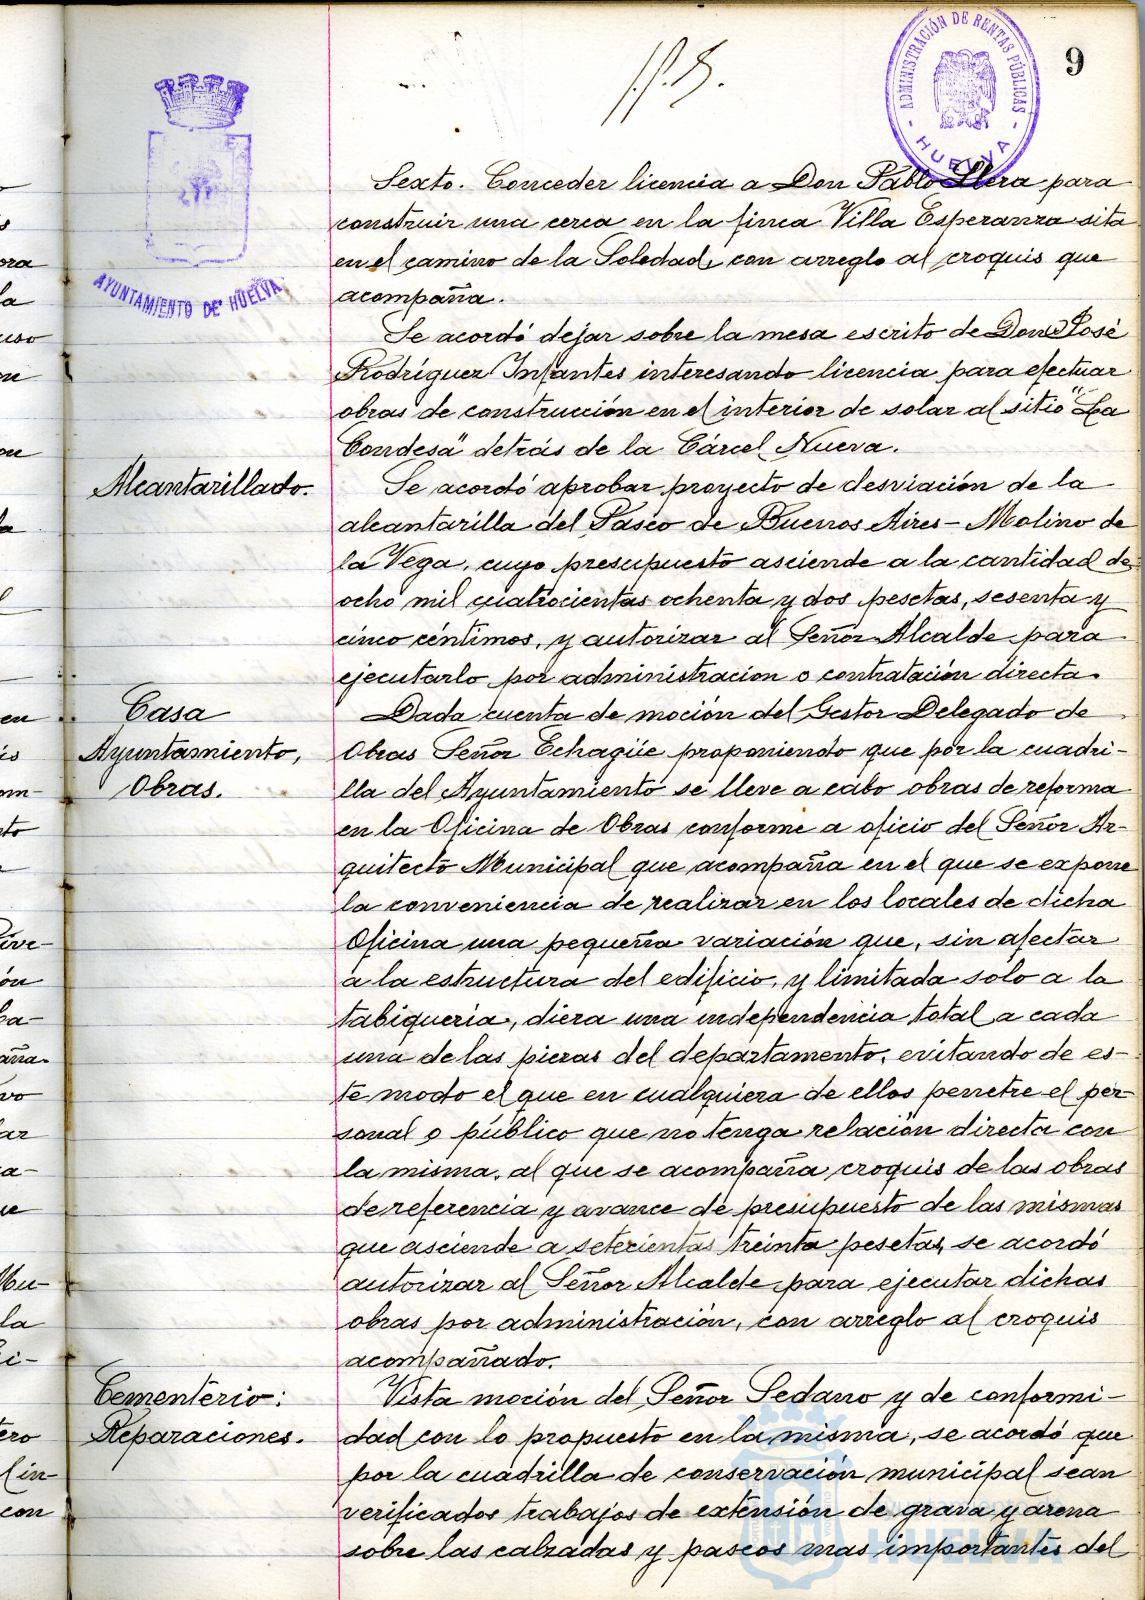 9
ADMINISTRACIÓN DE RENTAS PÚBLICAS
- HUELVA -
AYUNTAMIENTO DE HUELVA
Sexto. Conceder licencia a Don Pablo Llera para
construir una cerca en la finca Villa Esperanza sita
en el camino de la Soledad, con arreglo al croquis que
acompaña.
Se acordó dejar sobre la mesa escrito de Don José
Rodríguez Infantes interesando licencia para efectuar
obras de construcción en el interior de solar al sitio "La
Condesa" detrás de la Cárcel Nueva.
Alcantarillado.
Se acordó aprobar proyecto de desviación de la
alcantarilla del Paseo de Buenos Aires - Molino de
la Vega, cuyo presupuesto asciende a la cantidad de
ocho mil cuatrocientas ochenta y dos pesetas, sesenta y
cinco céntimos, y autorizar al Señor Alcalde para
ejecutarlo por administración o contratación directa.
Casa
Ayuntamiento,
Obras.
Dada cuenta de moción del Gestor Delegado de
Obras Señor Echagüe proponiendo que por la cuadri-
lla del Ayuntamiento se lleve a cabo obras de reforma
en la Oficina de Obras conforme a oficio del Señor Ar-
quitecto Municipal que acompaña en el que se expone
la conveniencia de realizar en los locales de dicha
Oficina una pequeña variación que, sin afectar
a la estructura del edificio, y limitada solo a la
tabiquería, diera una independencia total a cada
una de las piezas del departamento, evitando de es-
te modo el que en cualquiera de ellos penetre el per-
sonal o público que no tenga relación directa con
la misma, al que se acompaña croquis de las obras
de referencia y avance de presupuesto de las mismas
que asciende a setecientas treinta pesetas, se acordó
autorizar al Señor Alcalde para ejecutar dichas
obras por administración, con arreglo al croquis
acompañado.
Cementerio:
Reparaciones.
Vista moción del Señor Sedano y de conformi-
dad con lo propuesto en la misma, se acordó que
por la cuadrilla de conservación municipal sean
verificados trabajos de extensión de grava y arena
sobre las calzadas y paseos mas importantes del
HUELVA